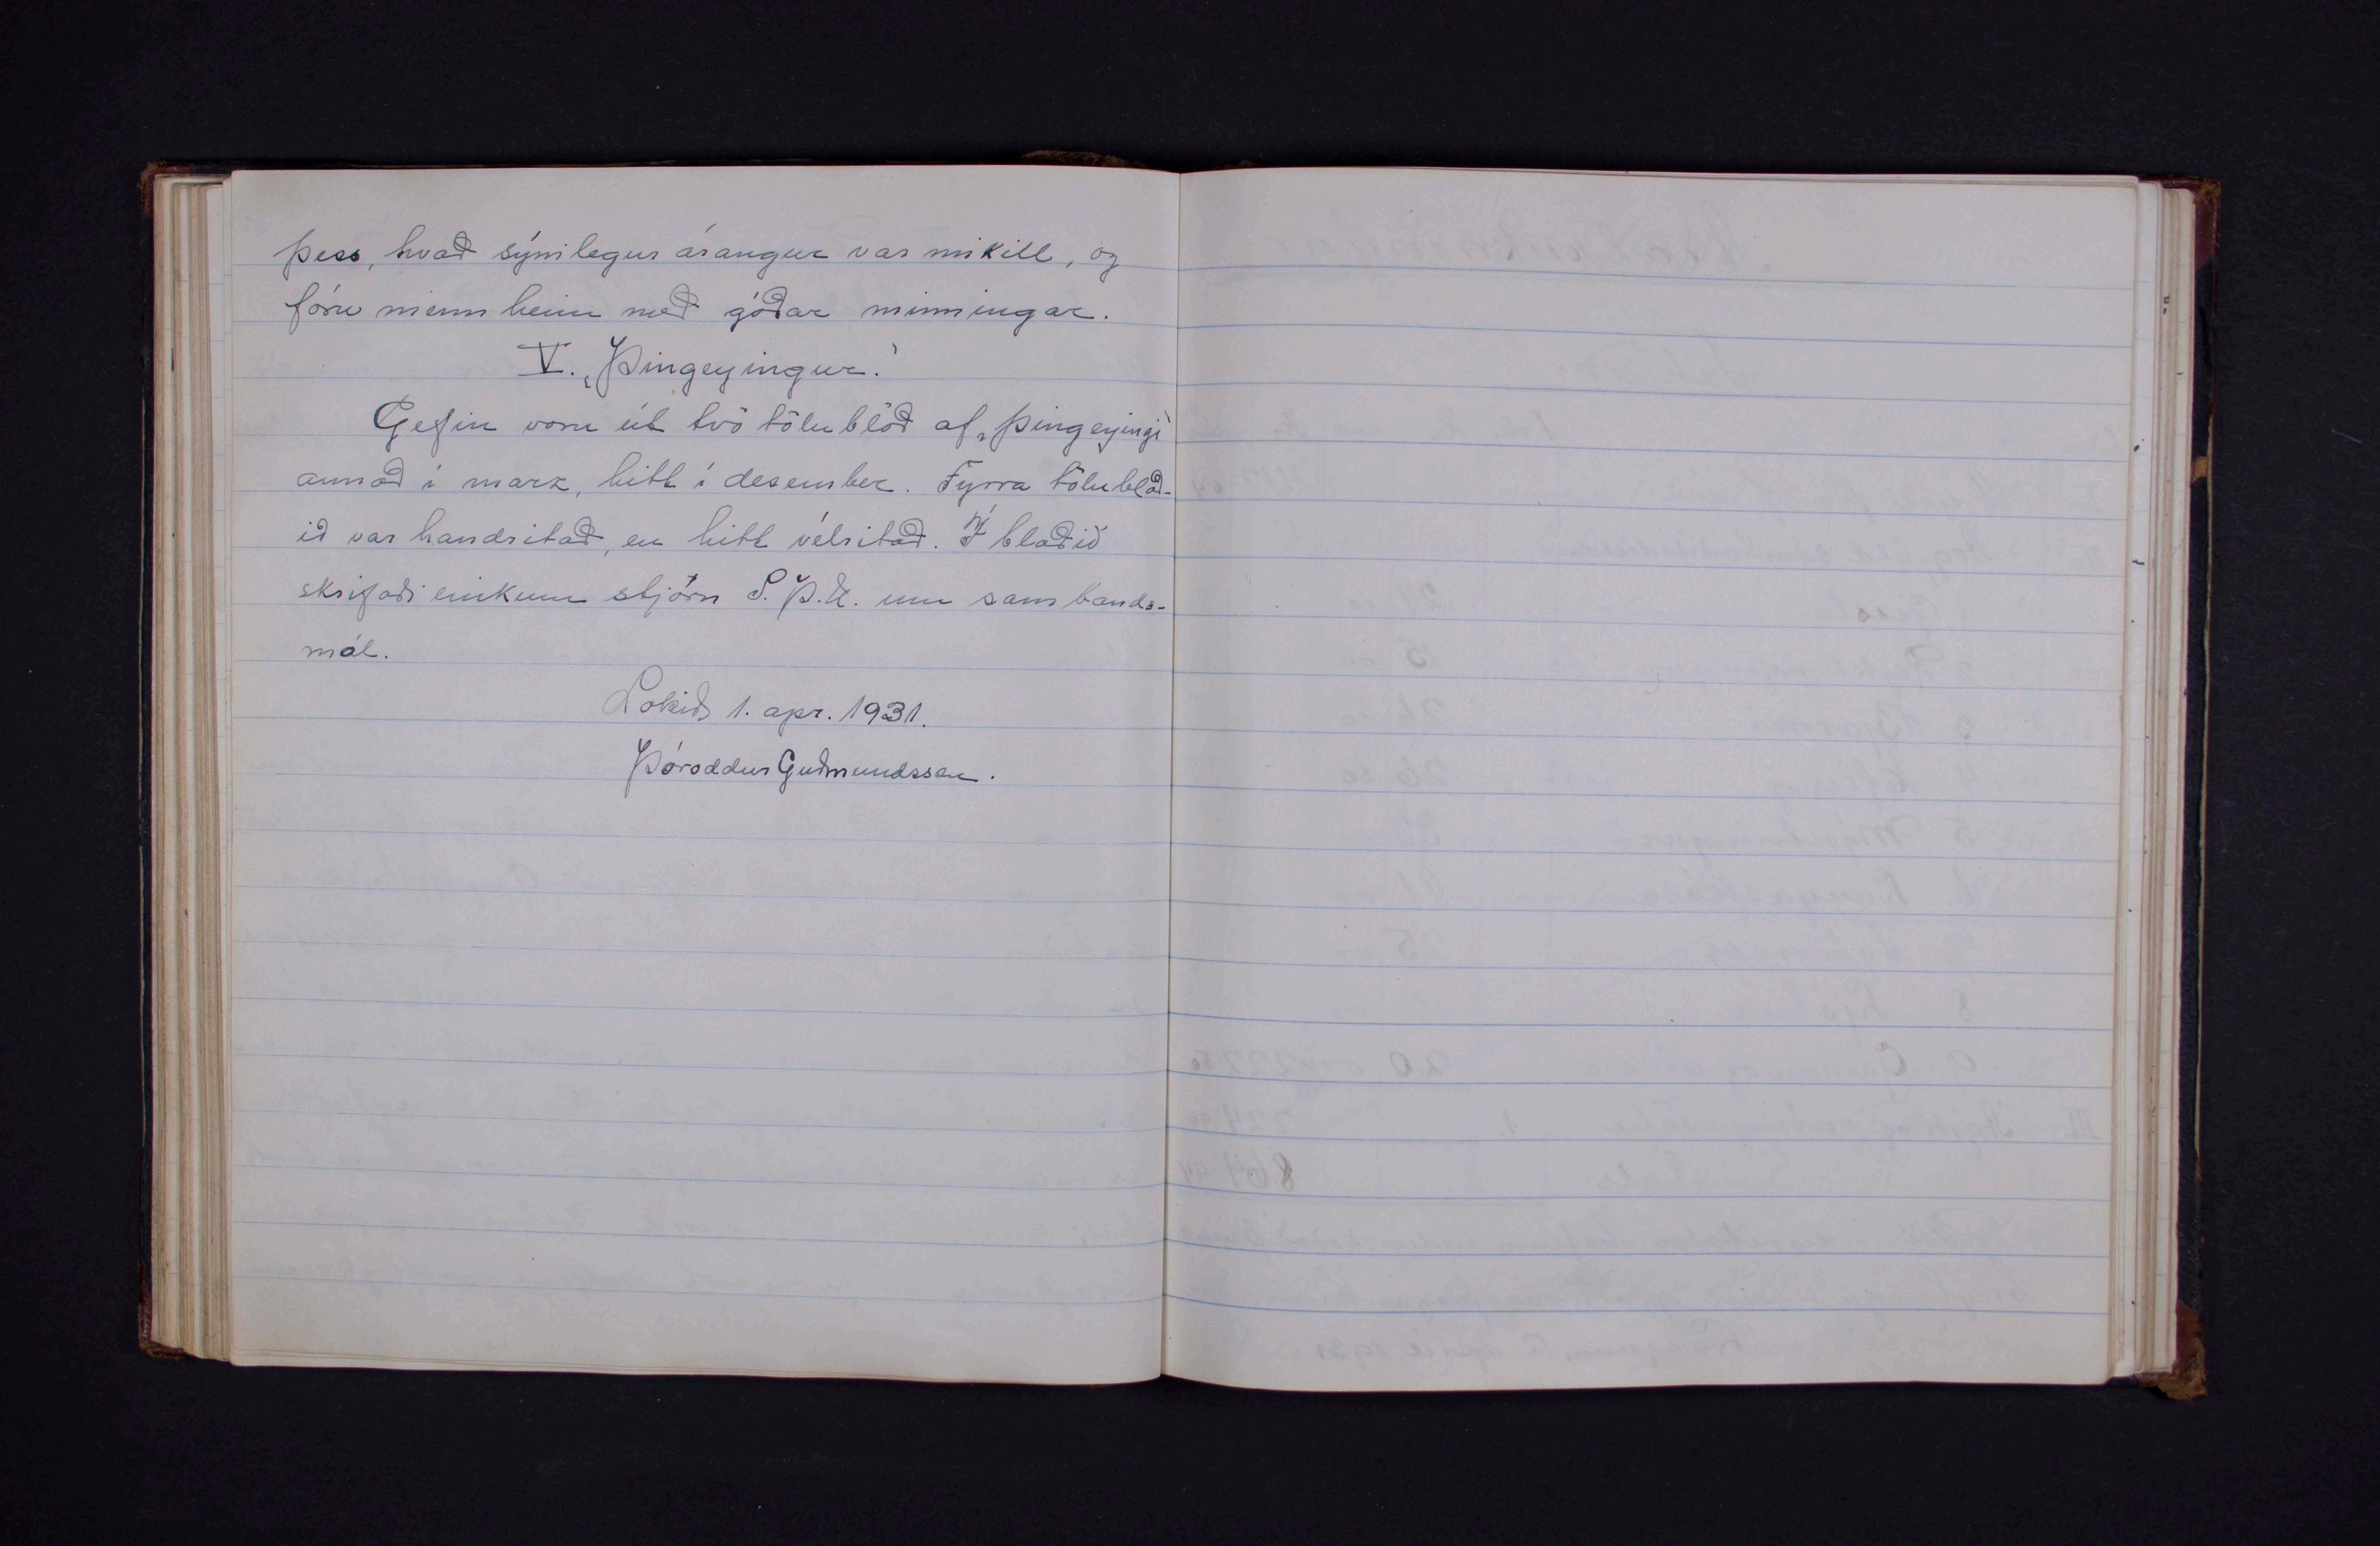 þess, hvað sýnilegur árangur var mikill, og
fóru menn heim með góðar minningar.
V. „Þingeyingur."
Gefin voru út tvö tölublöð af „Þingeyingi"
annað í marz, hitt í desember. Fyrra tölublað-
ið var handritað, en hitt vélritað. Í blaðið
skrifaði einkum stjórn S.Þ.U. um sambands-
mál.
Lokið 1. apr. 1931.
Þóroddur Guðmundsson.